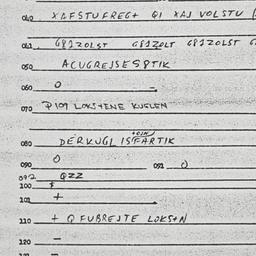 040 XAFSTUFREG+ QI XAJ VOLSTU
041 G81ZOLST G81ZOLT G81ZOLST G
050 ACUGREJSESPTIK
060 O -
070 P109 LOKSTENE KUGLEN
080 DERKUGL ISFARTIK
090 O 091 O
092 QZZ
100 $
101 +
110 + Q FUBREJTE LOKS+N
120 -